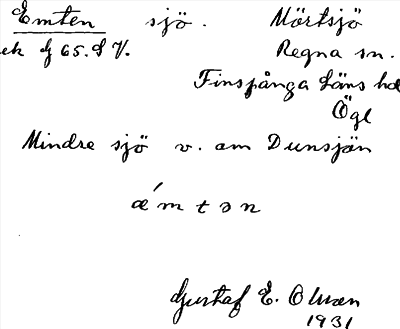 Emten sjö. Mörtsjö
ek G 65. S V. Regna sn.
Finspånga läns hd
Ögl
Mindre sjö v. om Dunsjön
ǽmtən
Gustaf E. Olsson
1931